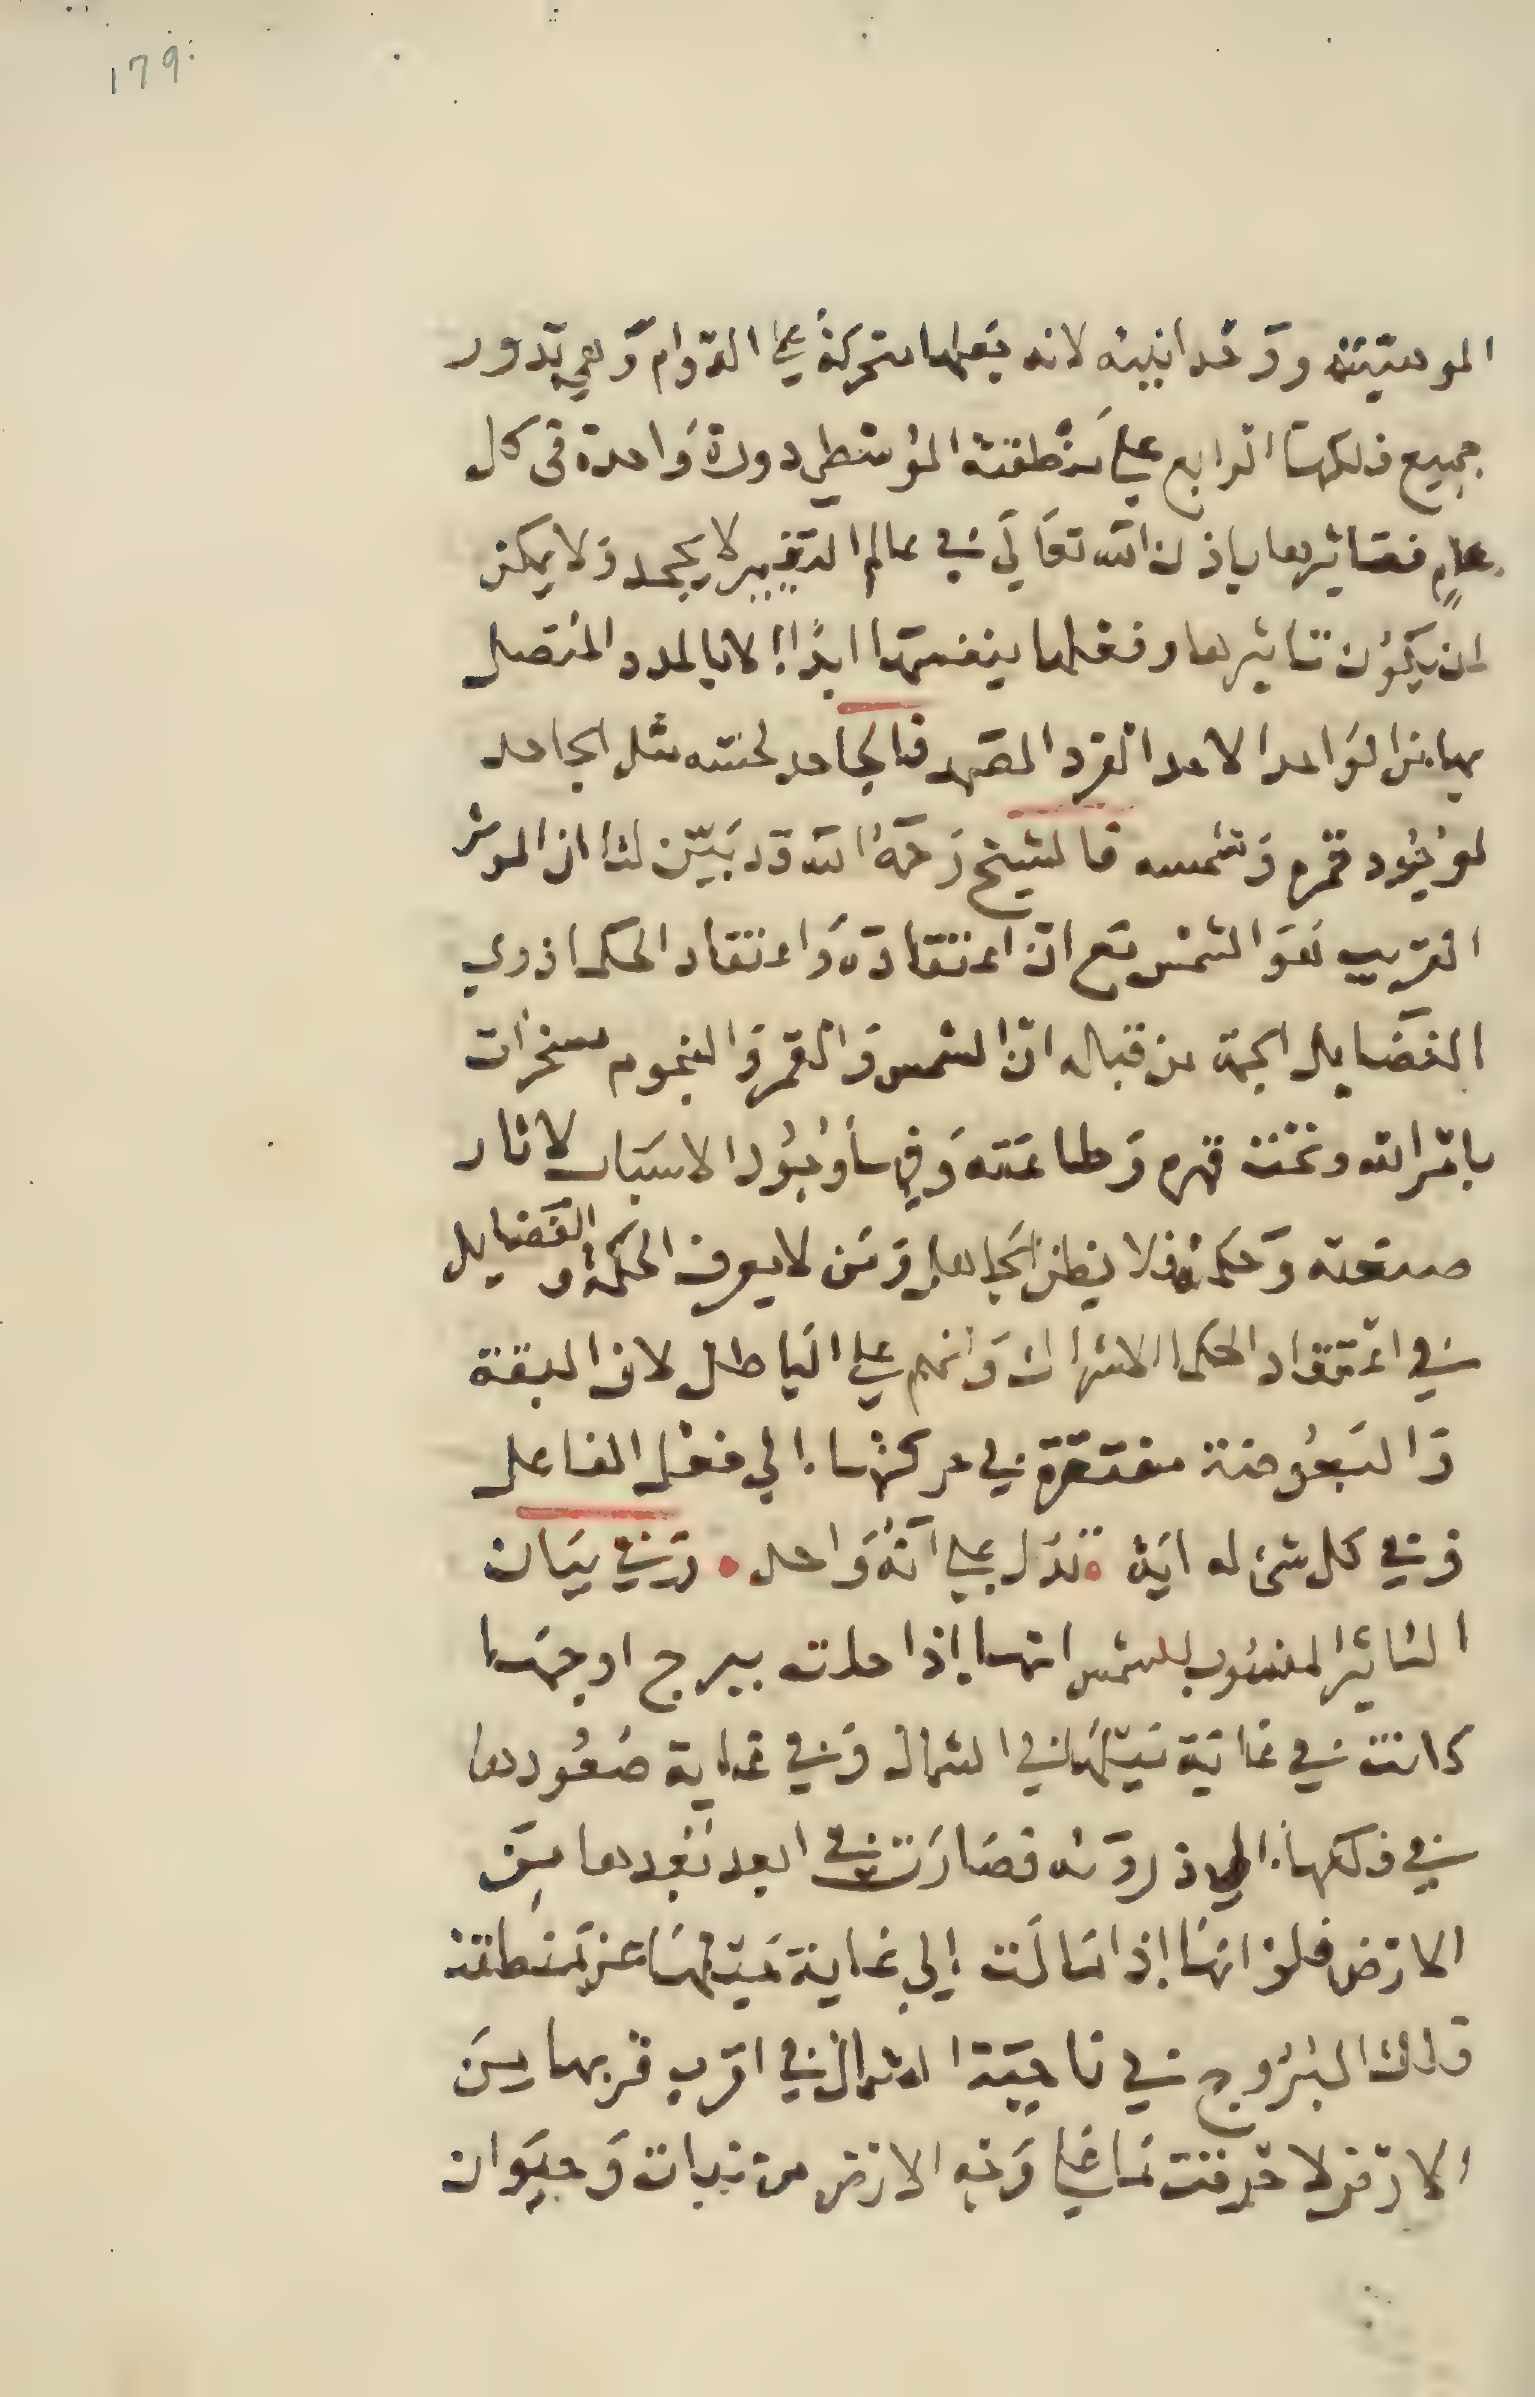 179
الوهيته ووحدانيته لانه جعلها متحركة على الدوام وهي تدور
جميع فلكها الرابع على منطقته الوسطي دورة واحدة في كل
عام فتاثيرها باذن الله تعالي في عالم التغيير لا يجحد ولا يمكن
ان يكون تاثيرها وفعلها بنفسها ابدًا إلا بالمدد المتصل
بها من الواحد الاحد الفرد الصمد فالجاحد لحسه مثل الجاحد
لوجود قمره وشمسه فالشيخ رحمه الله قد بيّن لنا ان الموثر
القريب هو الشمس مع انّ اعتقاده واعتقاد الحكما ذوي
الفضايل الجمة من قباله انّ الشمس والقمر والنجوم مسخرات
بامر الله وتحت قهره وطاعته وفي ساوجود الاسباب لاثار
صنعته وحكمته فلا يظن الجاهل ومن لا يعرف الحكمة والفضايل
في اعتقاد الحكما الاشراك وانهم على الباطل لان البقة
والبعوضة مفتقرة في حركتها إلي فعل الفاعل
وفي كل شئ له اية تدل على انه واحد وفي بيان
التاثير المنسوب للشمس انها إذا حلت ببرج اوجها
كانت في غاية ميلها في الشمال وفي غاية صعودها
في فلكها إلي ذروته فصارت في ابعد بُعدها من
الارض فلو انها إذا مالت إلي غاية ميلها عن منطقة
فلك البروج في ناحية الشمال في اقرب قربها من
الارض لاحرقت ما على وجه الارض من نبات وحيوان